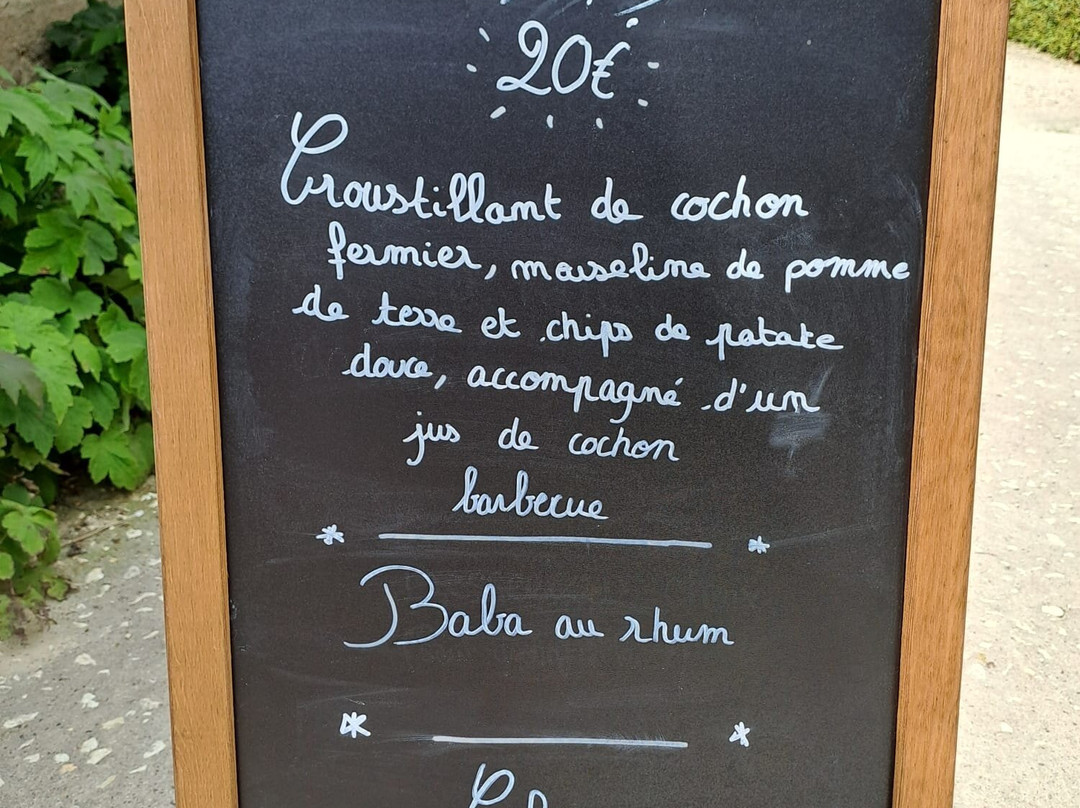 20€
Croustillant de cochon
fermier, mousseline de pomme
de terre et chips de patate
douce, accompagné d'un
jus de cochon
barbecue
* *
Baba au rhum
* *